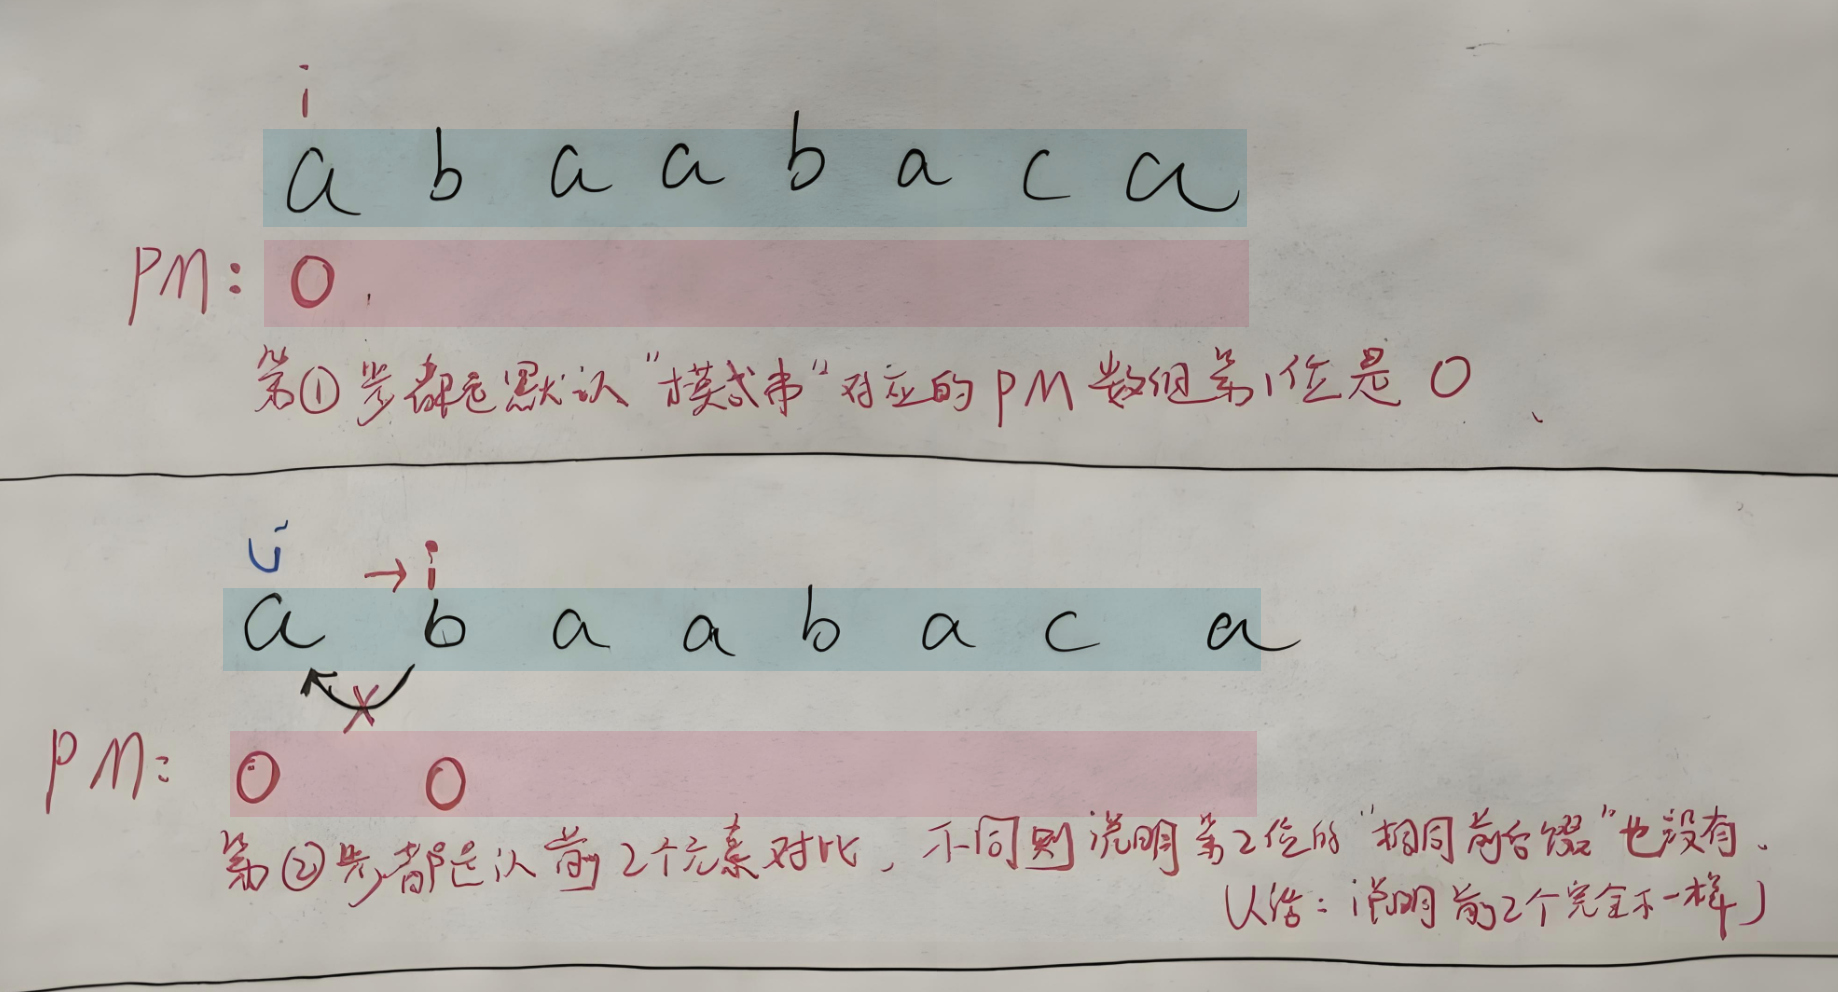 i
a b a a b a c a
PM: 0
第①步都是默认"模式串"对应的PM数组第1位是0
j → i
a b a a b a c a
x
PM: 0 0
第②步都是从前2个元素对比,不同则说明第2位的"相同前后缀"也没有.
(人话:说明前2个完全不一样)